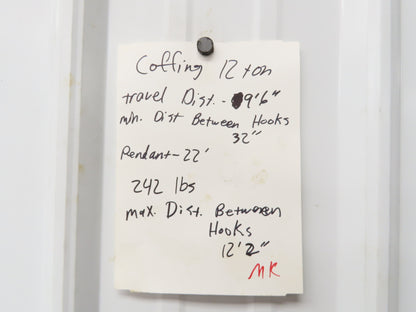 Coffing 12 ton
travel Dist. - 9'6"
min. Dist Between Hooks
32"
Pendant - 22'
242 lbs
max. Dist. Between
Hooks
12'2"
MK